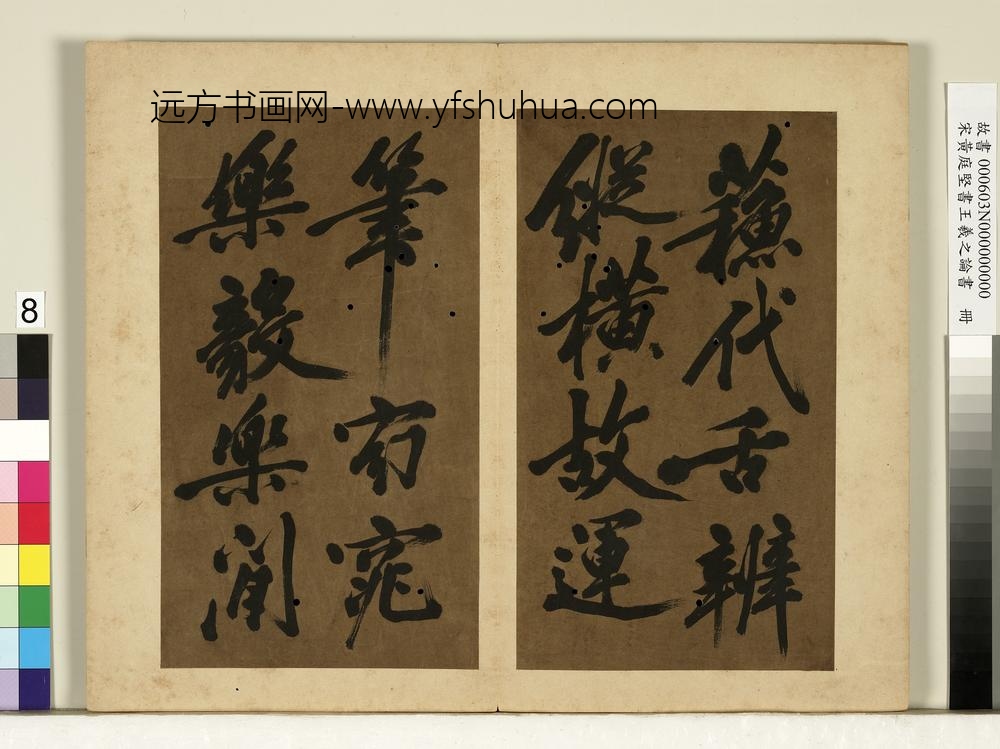 远方书画网-www.yfshuhua.com
蘓代舌辨
縱橫故運
筆窈窕
樂毅樂閒
故書 000603N000000000
宋黃庭堅書王羲之論書 冊
8